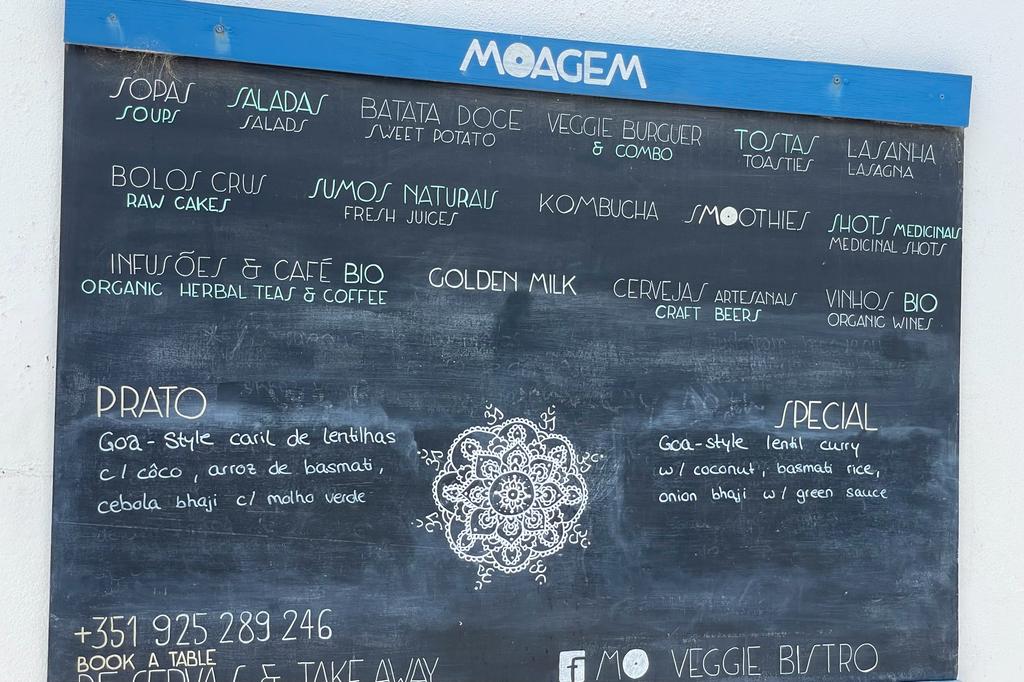 MOAGEM
SOPAS SALADAS BATATA DOCE VEGGIE BURGUER TOSTAS LASANHA
SOUPS SALADS SWEET POTATO & COMBO TOASTIES LASAGNA
BOLOS CRUS SUMOS NATURAIS KOMBUCHA SMOOTHIES SHOTS MEDICINAIS
RAW CAKES FRESH JUICES MEDICINAL SHOTS
INFUSÕES & CAFÉ BIO GOLDEN MILK CERVEJAS ARTESANAIS VINHOS BIO
ORGANIC HERBAL TEAS & COFFEE CRAFT BEERS ORGANIC WINES
PRATO
Goa-Style caril de lentilhas
c/ côco, arroz de basmati,
cebola bhaji c/ molho verde
SPECIAL
Goa-style lentil curry
w/ coconut, basmati rice,
onion bhaji w/ green sauce
+351 925 289 246
BOOK A TABLE
RESERVAS & TAKE AWAY
f MO VEGGIE BISTRO